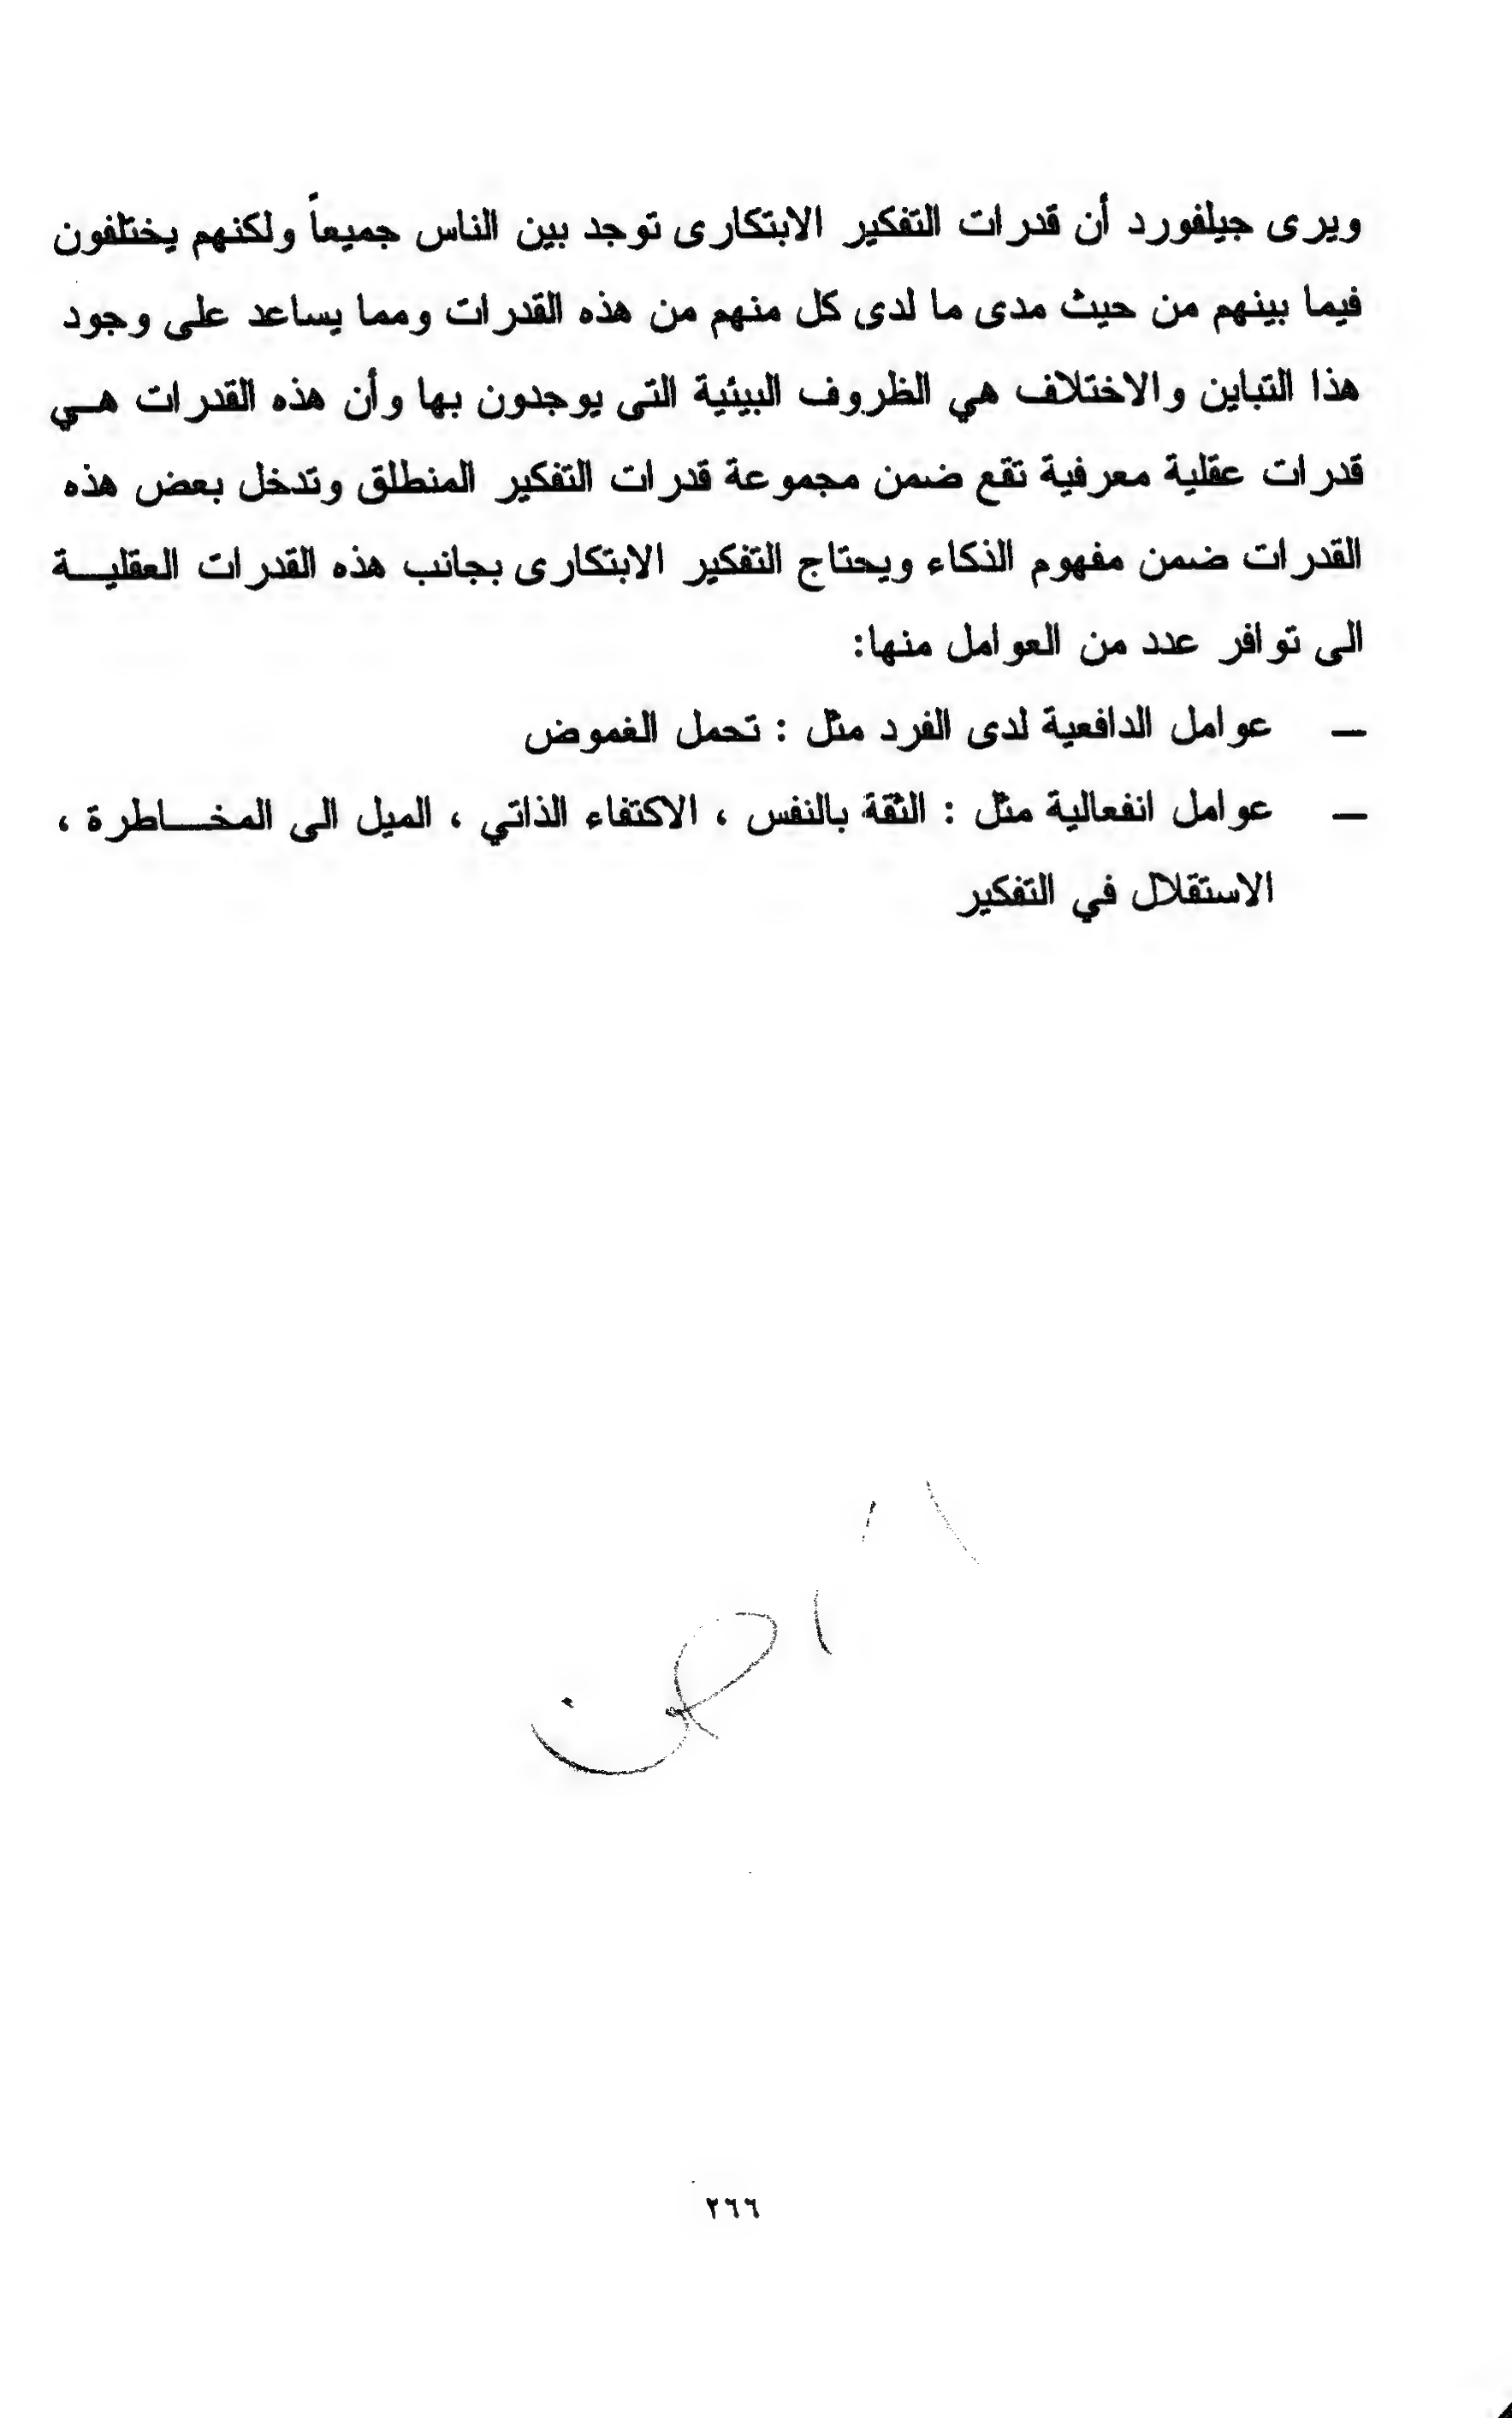 ويرى جيلفورد أن قدرات التفكير الابتكارى توجد بين الناس جميعاً ولكنهم يختلفون
فيما بينهم من حيث مدى ما لدى كل منهم من هذه القدرات ومما يساعد على وجود
هذا التباين والاختلاف هي الظروف البيئية التى يوجدون بها وأن هذه القدرات هــي
قدرات عقلية معرفية تقع ضمن مجموعة قدرات التفكير المنطلق وتدخل بعض هذه
القدرات ضمن مفهوم الذكاء ويحتاج التفكير الابتكارى بجانب هذه القدرات العقليـــة
الى توافر عدد من العوامل منها:
— عوامل الدافعية لدى الفرد مثل : تحمل الغموض
— عوامل انفعالية مثل : الثقة بالنفس ، الاكتفاء الذاتي ، الميل الى المخـــاطرة ،
الاستقلال في التفكير
٢٦٦